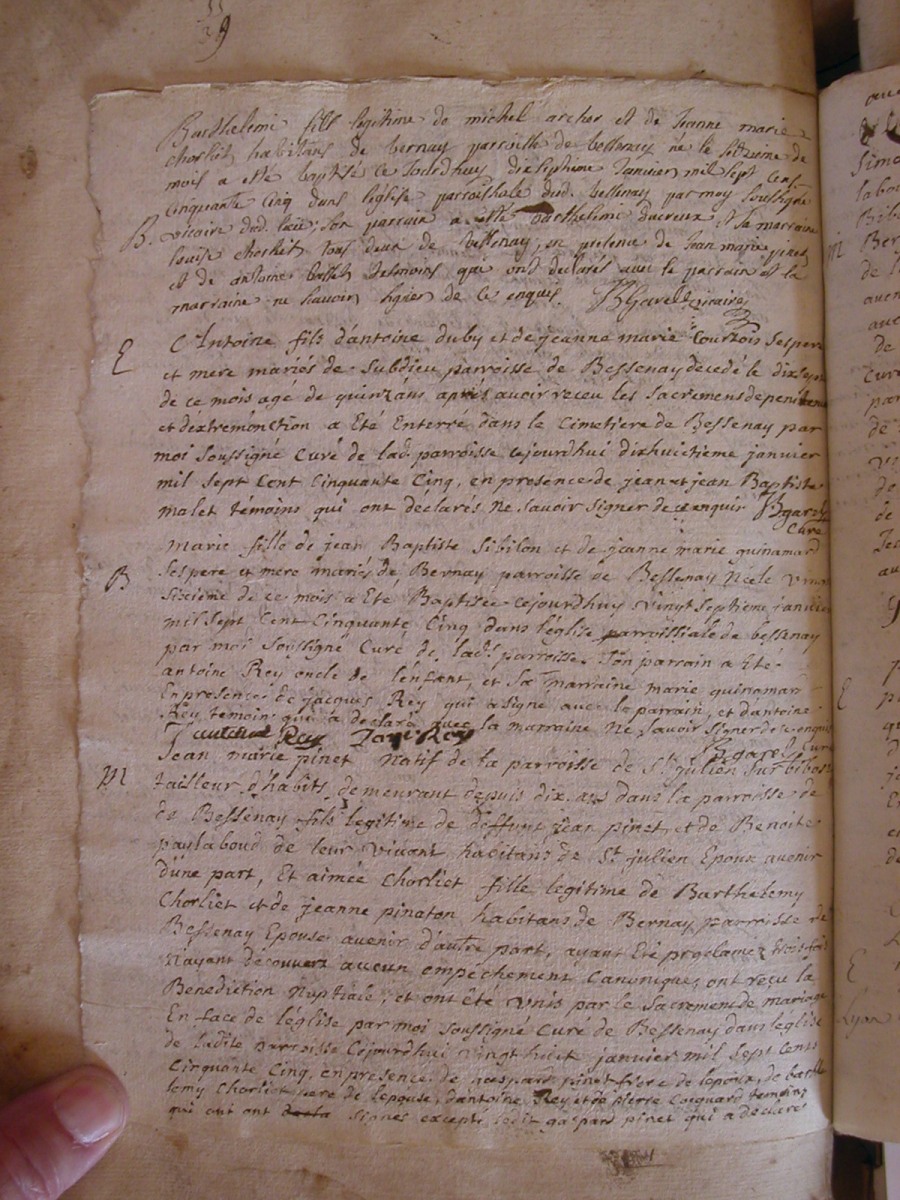 Barthelemi fils legitime de michel archer et de Jeanne marie
chorliet habitans de bernay parroisse de bessenay ne le seizieme de
mois a ete baptisé ce jourdhuy dixseptieme Janvier mil sept cens
Cinquante Cinq dans l'église parroissiale dud. bessenay par moy soussigné
B. vicaire dud. lieu; son parrain a eté barthelemi ducreux et sa marraine
louise chorliet tous deux de bessenay, en presence de Jean marie pinet
et de antoine tesmoins qui ont declarés avec le parrain et la
marraine ne scavoir signer de ce enquis. BGarel vicaire
E Antoine fils d'antoine duby et de jeanne marie Courtois ses pere
et mere mariés de Subdieu parroisse de Bessenay decedé le dixsept
de ce mois agé de quinz ans aprés avoir receu les Sacremens de penitence
et dextremonction a Eté Enterré dans le Cimetiere de Bessenay par
moi soussigné Curé de lad. parroisse cejourdhui dixhuitieme janvier
mil sept Cent Cinquante Cinq, en presence de jean et jean Baptiste
malet témoins qui ont déclarés ne savoir signer de ce enquis Bgarel
Curé
marie fille de jean Baptiste Sibilon et de jeanne marie quinamard
B ses pere et mere mariés de Bernay parroisse de Bessenay Néele vingt
sixieme de ce mois a Eté Baptisée cejourdhuy vingt septieme janvier
mil sept Cent Cinquante Cinq dans leglise parroissiale de bessenay
par moi soussigné Curé de lad. parroisse. son parrain a Eté
antoine Rey oncle de l'enfant, et sa marraine marie quinamard
En presence de jacques Rey qui a signé avec le parrain, et d'antoine
Rey temoin qui a declaré avec la marraine Ne savoir signer de ce enquis
Rey Rey Bgarel Curé
M Jean marie pinet Natif de la parroisse de St. julien sur bibost
tailleur d'habits demeurant depuis dix ans dans la parroisse de
de Bessenay fils legitime de deffunt jean pinet et de Benoite
paylaboud de leur vivant habitans de St julien Epoux avenir
d'une part, Et aimée Chorliet fille legitime de Barthelemy
Chorliet et de jeanne pinaton habitans de Bernay parroisse de
Bessenay Epouse avenir d'autre part, ayant Eté proclamez trois fois
Nayant découvert aucun empéchement Canonique, ont reçu la
Benediction Nuptiale, et ont été unis par le Sacrement de mariage
En face de l'église par moi soussigné Curé de Bessenay dans l'église
de ladite parroisse Cejourdhui vingt huit janvier mil sept Cents
Cinquante Cinq, en presence de gaspard pinet frere de lepoux, de barthe
lemy Chorliet pere de lepouse, dantoine Rey et de pierre Coquard temoins
qui ont signés excepté ledit gaspard pinet qui a déclaré